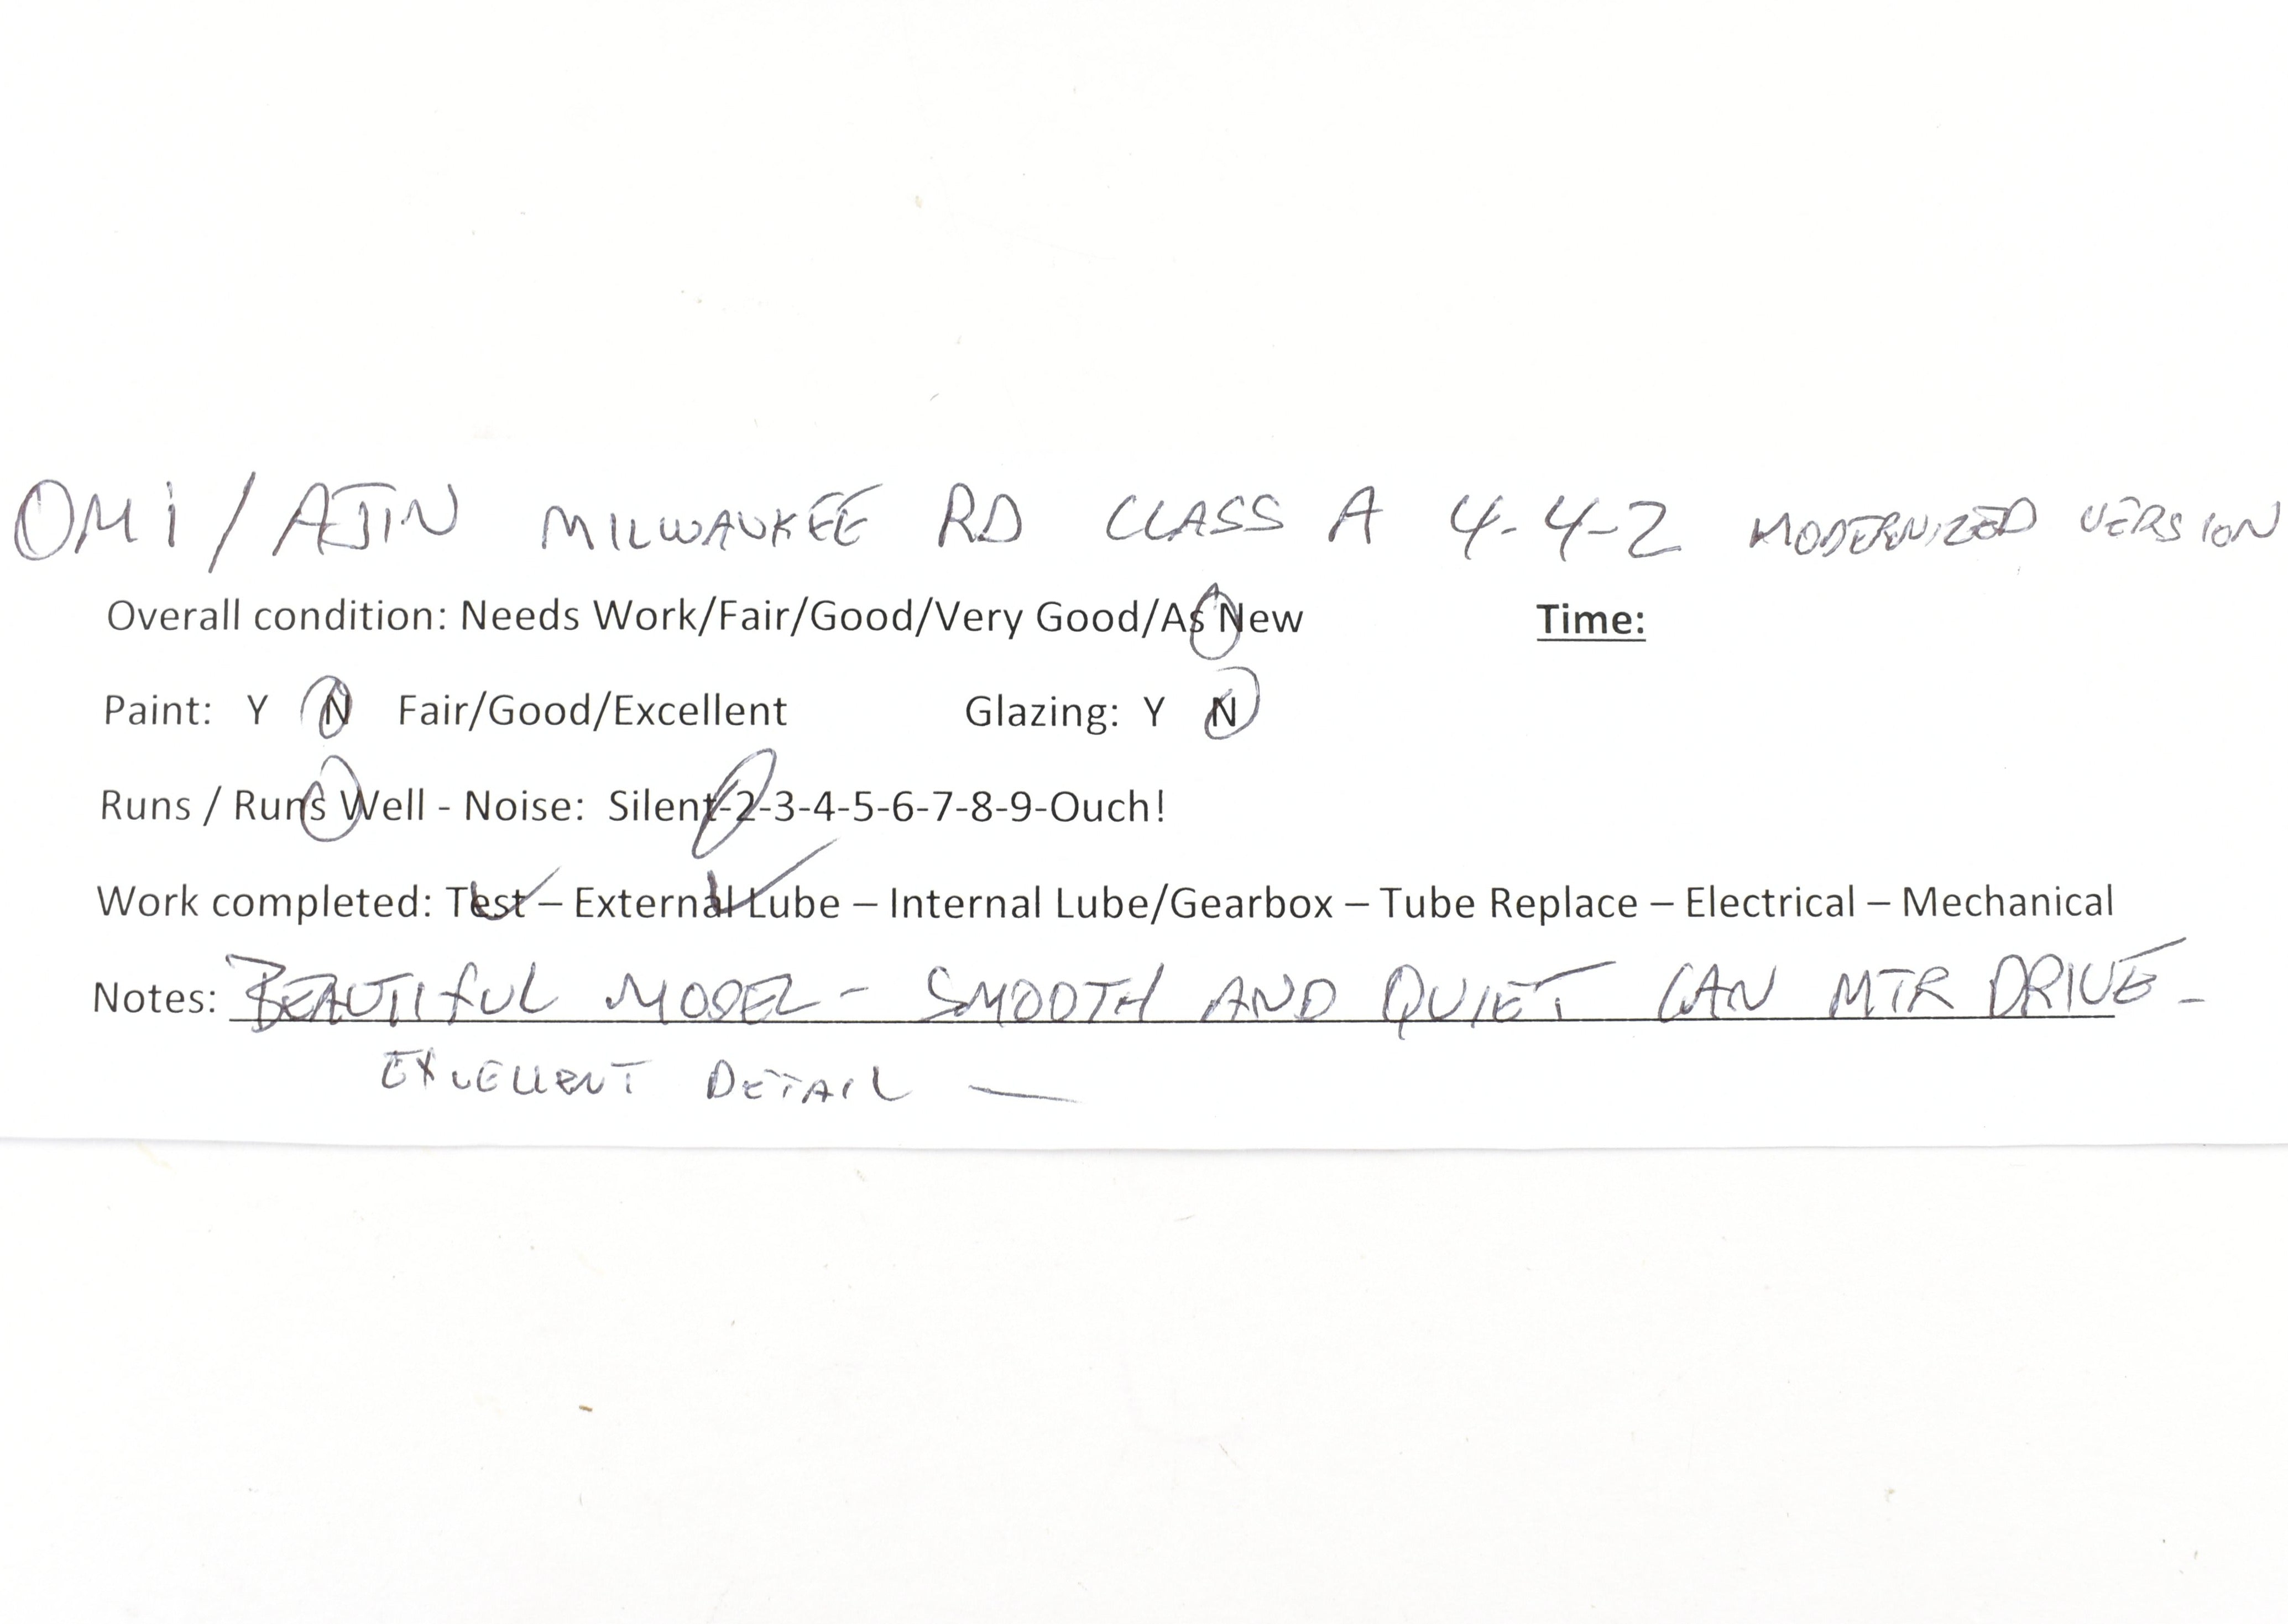 OMI / AJIN MILWAUKEE RD CLASS A 4-4-2 MODERNIZED VERSION
Overall condition: Needs Work/Fair/Good/Very Good/As New Time:
Paint: Y N Fair/Good/Excellent Glazing: Y N
Runs / Runs Well - Noise: Silent-2-3-4-5-6-7-8-9-Ouch!
Work completed: Test – External Lube – Internal Lube/Gearbox – Tube Replace – Electrical – Mechanical
Notes: BEAUTIFUL MODEL - SMOOTH AND QUIET CAN MTR DRIVE -
EXCELLENT DETAIL —